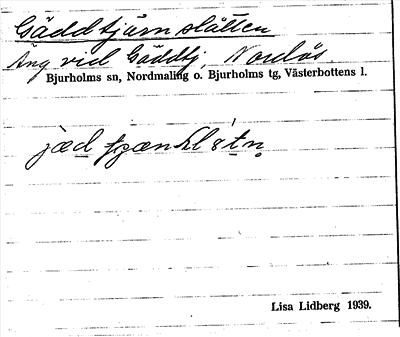 Gäddtjärnslåtten
Äng vid Gäddtj, Norelös
Bjurholms sn, Nordmaling o. Bjurholms tg, Västerbottens l.
Lisa Lidberg 1939.